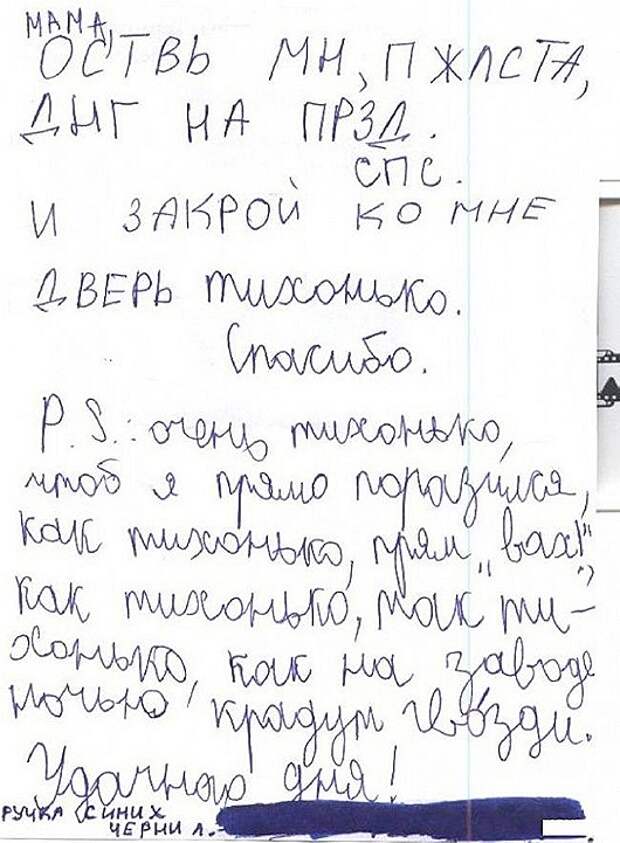 МАМА,
ОСТВЬ МН, ПЖЛСТА,
ДНГ НА ПРЗД.
СПС.
И ЗАКРОЙ КО МНЕ
ДВЕРЬ тихонько.
Спасибо.
P.S.: очень тихонько,
чтоб я прямо поразился,
как тихонько, прям „вах!",
как тихонько, так ти-
хонько, как на заводе
ночью крадут гвозди.
Удачного дня!
РУЧКА СИНИХ
ЧЕРНИЛ.-